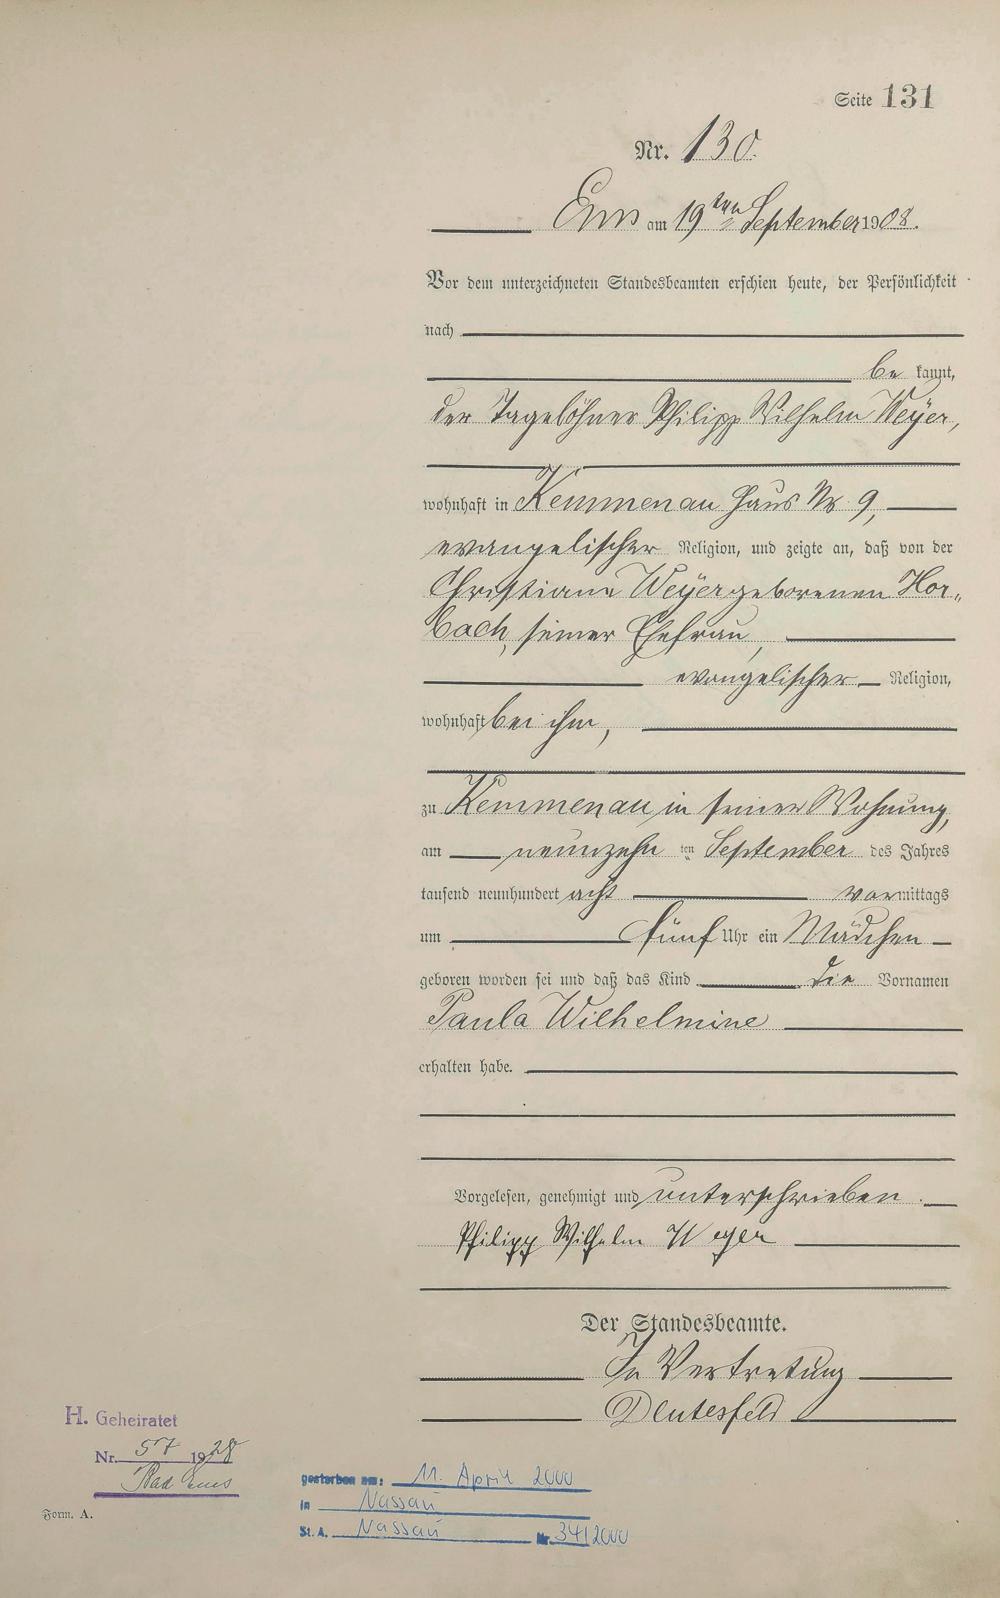 Seite 131
Nr. 130.
Ems am 19ten September 1908.
Vor dem unterzeichneten Standesbeamten erschien heute, der Persönlichkeit
nach
be kannt,
der Tagelöhner Philipp Wilhelm Weyer,
wohnhaft in Kemmenau Haus Nr 9,
evangelischer Religion, und zeigte an, daß von der
Christiane Weyer geborenen Hor„
bach, seiner Ehefrau,
evangelischer Religion,
wohnhaft bei ihm,
zu Kemmenau in seiner Wohnung,
am neunzehn ten September des Jahres
tausend neunhundert acht vormittags
um fünf Uhr ein Mädchen
geboren worden sei und daß das Kind die Vornamen
Paula Wilhelmine
erhalten habe.
Vorgelesen, genehmigt und unterschrieben.
Philipp Wilhelm Weyer
Der Standesbeamte.
In Vertretung
Deutesfeld
H. Geheiratet
Nr. 57 1928
Bad Ems
Form. A.
gestorben am: 11. April 2000
in Nassau
St. A. Nassau Nr. 34/2000